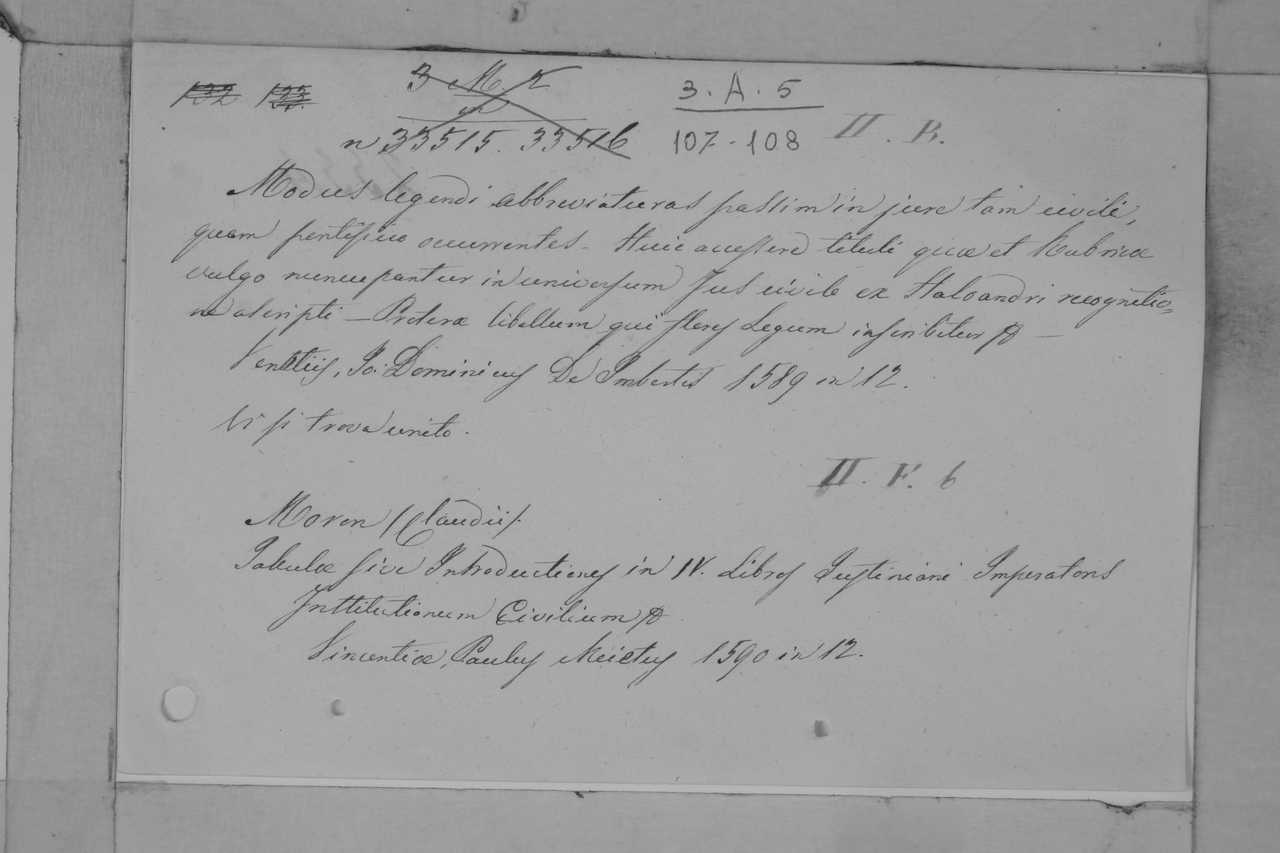 132 133 3 M 2 3. A. 5
n 33515. 33516 107-108 II. B.
Modus legendi abbreviaturas passim in jure tam civili,
quam pontificio occurrentes - Huic accessere tituli quæ et Rubricæ
vulgo nuncupantur in universum Jus civile ex Haloandri recognitio=
ne ascripti - Præterea libellum qui flores Legum inscribitur &
Venetiis, Jo: Dominicus De Imbertis 1589 in 12.
Vi si trova unito.
II. F. 6
Moron (Claudii).
Tabulæ sive Introductiones in IV. Libros Justiniani Imperatoris
Institutionum Civilium &
Vincentiæ, Paulus Meietus 1590 in 12.